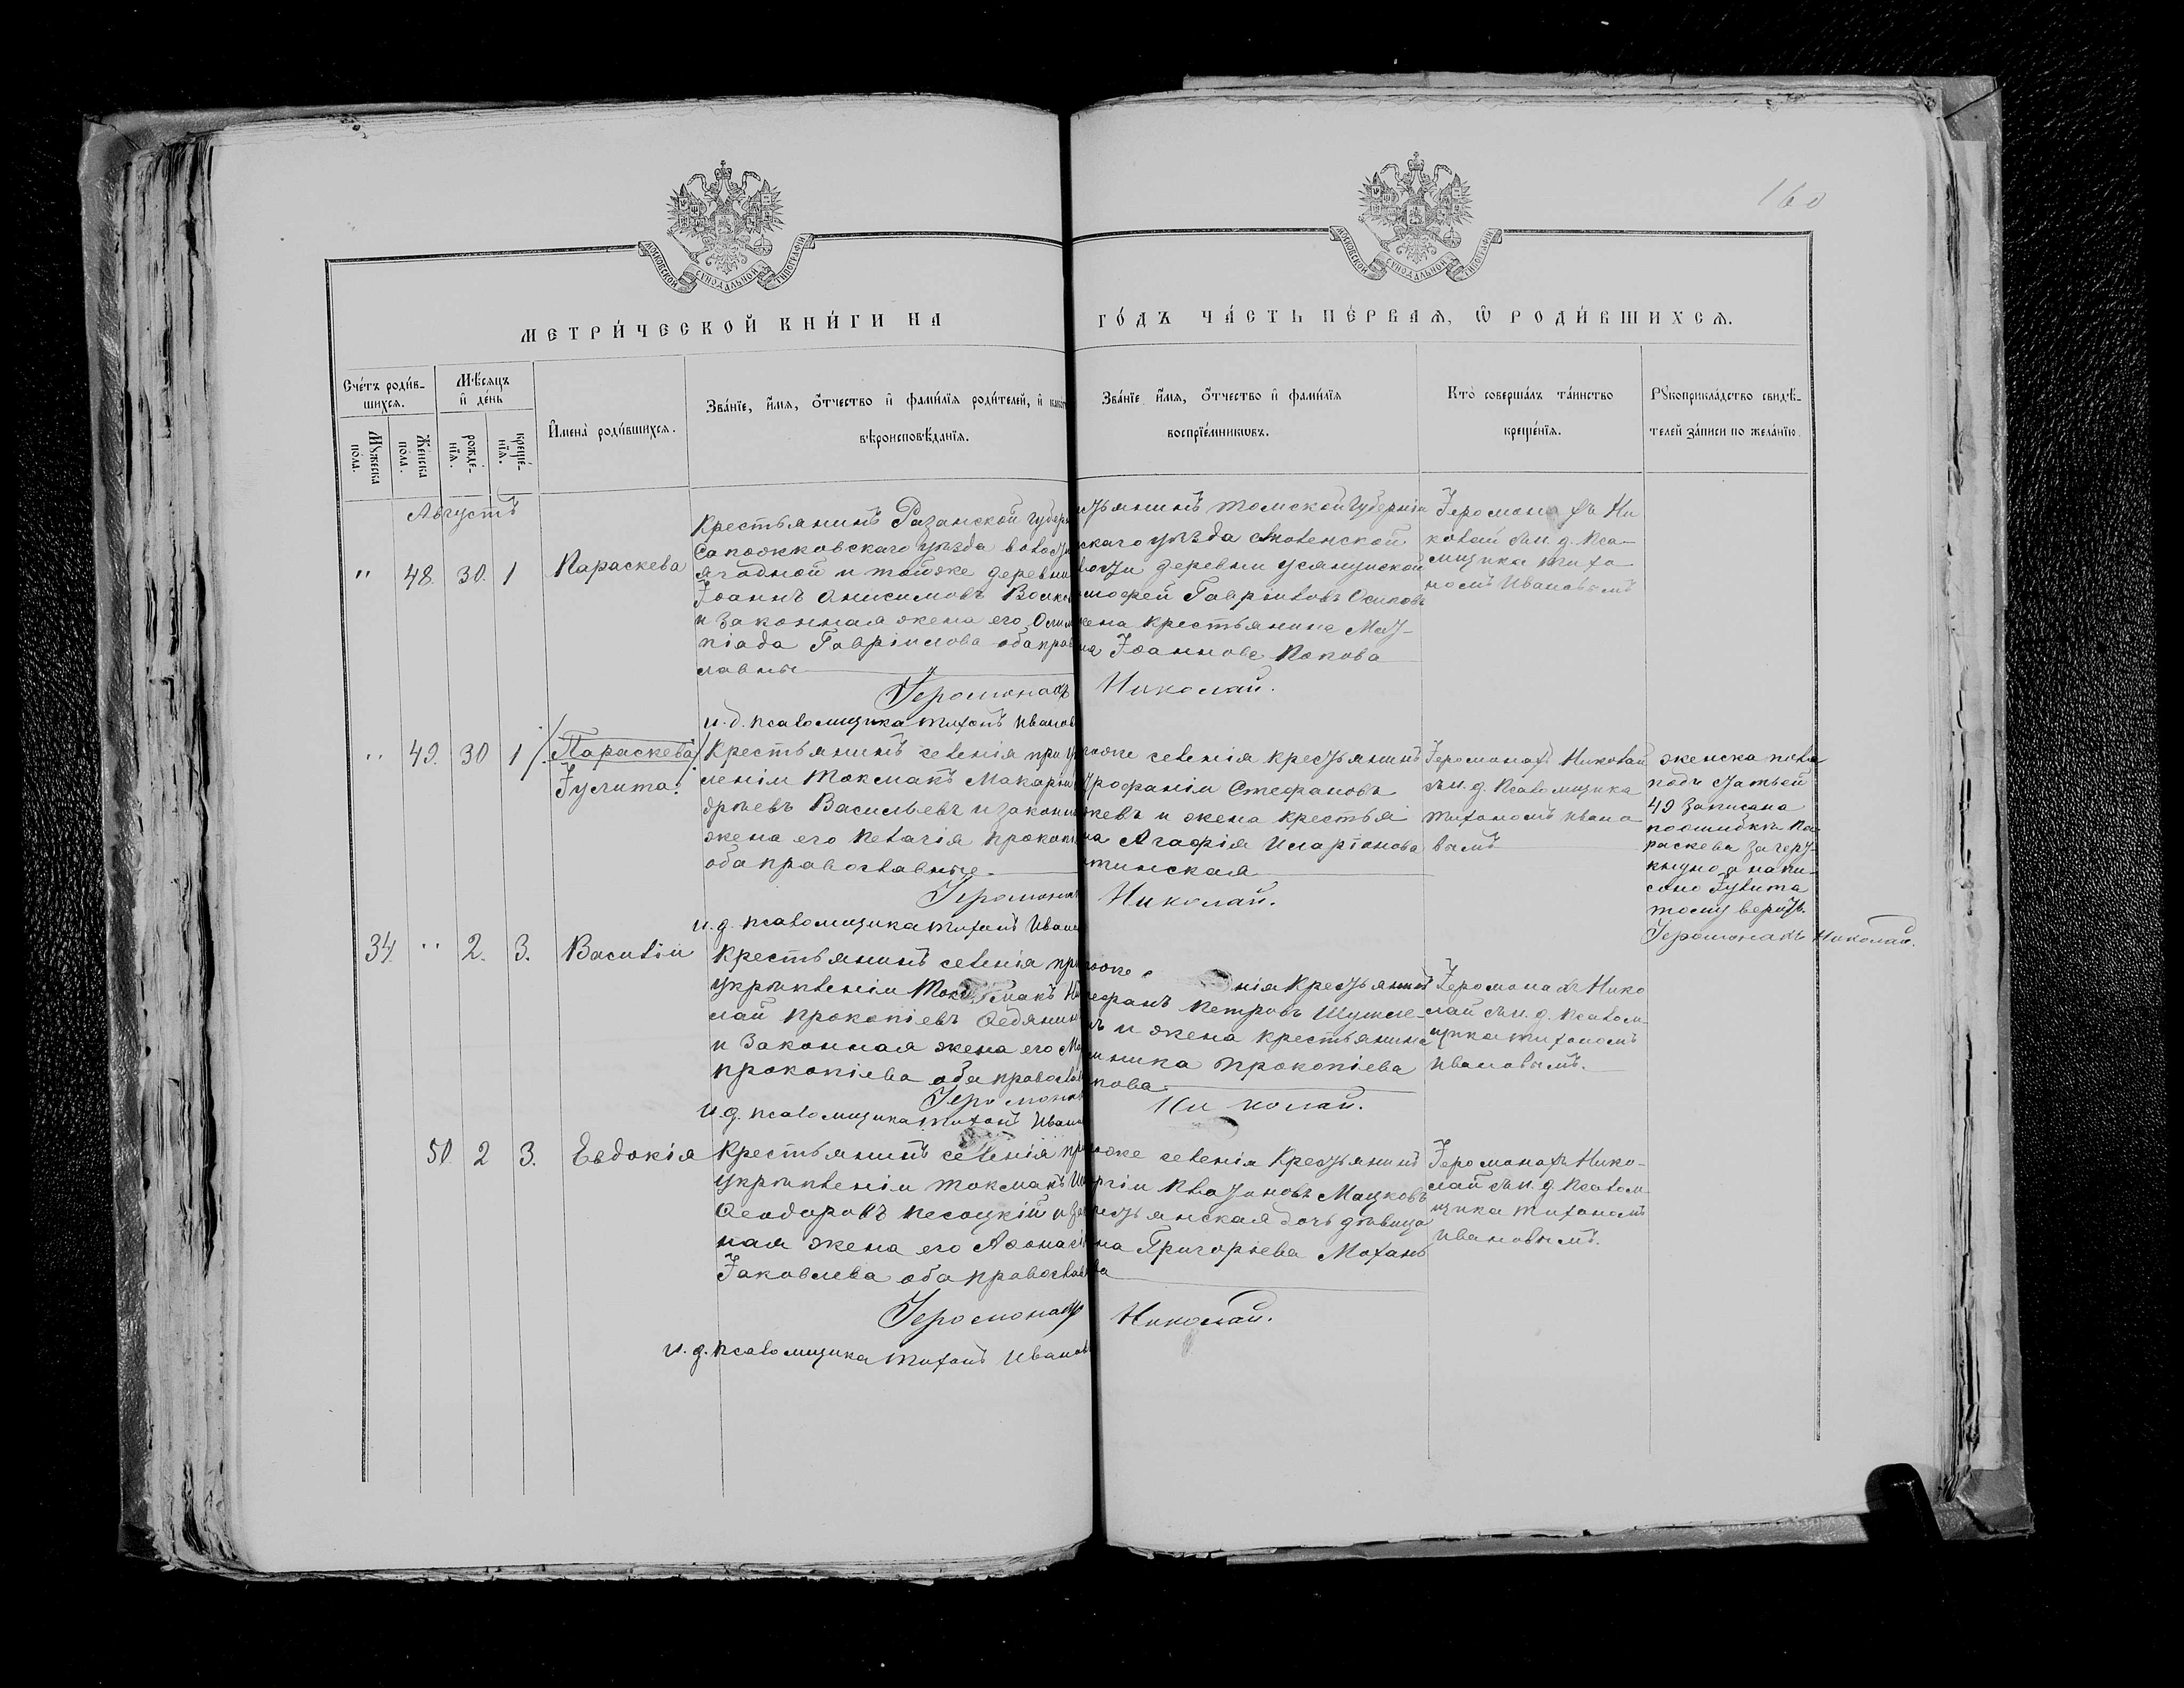 160
МОСКОВСКОЙ СѴНОДАЛЬНОЙ ТИПОГРАФІИ
МОСКОВСКОЙ СѴНОДАЛЬНОЙ ТИПОГРАФІИ
МЕТРИ́ЧЕСКОЙ КНИ́ГИ НА
ГО́ДЪ ЧА́СТЬ ПЕ́РВАѦ, Ѽ РОДИ́ВШИХСѦ.
Сче́тъ роди́в-
шихсѧ.
Мѣ́сѧцъ
и҆ де́нь
Мꙋ́жеска
пола.
Же́нска
пола.
рожде́-
нїѧ.
креще́-
нїѧ.
И҆мена̀ роди́вшихсѧ.
Зва́нїе, и҆́мѧ, ѻ҆́тчество и҆ фами́лїѧ роди́телей, и҆
вѣроисповѣ́данїѧ.
Зва́нїе, и҆́мѧ, ѻ҆́тчество и҆ фами́лїѧ
воспрїе́мниковъ.
Кто̀ соверша́лъ та́инство
креще́нїѧ.
Рꙋкоприкла́дство свидѣ́-
телей за́писи по жела́нїю.
Августъ
" 48. 30. 1 Параскева
Крестьянинъ Разанской губер
Сапожковскаго уѣзда волости
Ягодной и тойже деревни
Іоаннъ Анисимовъ Волко
и законная жена его Олим
піада Гавріилова оба прав
славные
стьянинъ томской губерніи
скаго уѣзда
лости деревни
мофей Гавріиловъ Осиповъ
жена крестьянина Мат-
на Іоаннова Попова
Іеромонахъ Ни
колай съ и. д. Пса-
мщика Тихо
номъ Ивановымъ
Іеромонахъ Николай.
и. д. псаломщика Тихонъ Иванов
" 49. 30 1 /Параскева/
Іулита.
Крестьянинъ селенія при у
леніи Токмакъ Макарій
дреевъ Васильевъ и законн
жена его Пелагія Прокоп
оба православные.
тогоже селенія крестьянинъ
трофаній Стефановъ
жевъ и жена крестья
на Агафія Иларіонова
тинская
Іеромонахъ Николай
съ и. д. Псаломщика
Тихономъ Ивано
вымъ
женска пола
подъ статьей
49 записана
поошибкѣ Па
раскева зачерт-
кнуно а напи-
сано Іулита
тому верить.
Іеромонахъ Николай.
Іеромонах Николай.
и. д. псаломщика Тихонъ Ивано
34. " 2. 3. Василій
Крестьянинъ селенія пр
укрѣпленіи Токмакъ Ни
лай Прокопіевъ Федянин
и законная жена его Ма
Прокопіева оба православ
нія Крестьянинъ
тефанъ Петровъ
ъ и жена крестьянина
Прокопіева
пова
Іеромонахъ Нико
лай съ и. д. Псалом-
щика Тихономъ
Ивановымъ.
Іеромонах Николай.
и. д. псаломщика Тихонъ Ивано
50. 2 3. Евдокія
Крестьянинъ селенія пр
укрѣпленіи Токмакъ
Феодоровъ Песоцкій и за
ная жена его Афонасі
Іаковлева оба православ
тогоже селенія Крестьянинъ
ргій Платоновъ Мацковъ
рестьянская дочь дѣвица
на Григорьева Мохань
ва
Іеромонахъ Нико-
лай съ и. д. Псалом-
щика Тихономъ
Ивановымъ.
Іеромонахъ Николай.
и. д. псаломщика Тихонъ Иванов